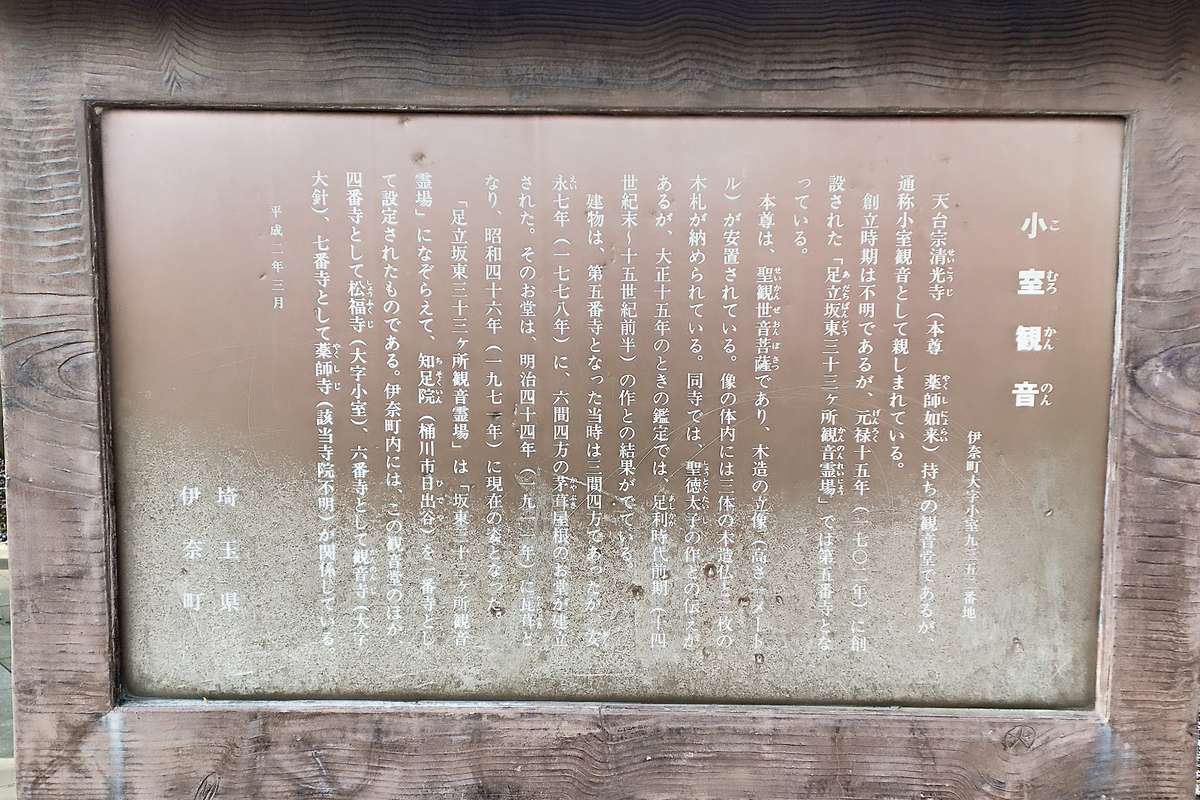 小室観音
伊奈町大字小室九三五二番地
天台宗清光寺（本尊　薬師如来）持ちの観音堂であるが、
通称小室観音として親しまれている。
創立時期は不明であるが、元禄十五年（一七〇二年）に創
設された「足立坂東三十三ヶ所観音霊場」では第五番寺とな
っている。
本尊は、聖観世音菩薩であり、木造の立像（高さ一メート
ル）が安置されている。像の体内には三体の木造仏と二枚の
木札が納められている。同寺では、聖徳太子の作との伝えが
あるが、大正十五年のときの鑑定では、足利時代前期（十四
世紀末～十五世紀前半）の作との結果がでている。
建物は、第五番寺となった当時は三間四方であったが、安
永七年（一七七八年）に、六間四方の茅葺屋根のお堂が建立
された。そのお堂は、明治四十四年（一九一一年）に瓦葺と
なり、昭和四十六年（一九七一年）に現在の姿となった。
「足立坂東三十三ヶ所観音霊場」は「坂東三十三ヶ所観音
霊場」になぞらえて、知足院（桶川市日出谷）を一番寺とし
て設定されたものである。伊奈町内には、この観音堂のほか
四番寺として松福寺（大字小室）、六番寺として観音寺（大字
大針）、七番寺として薬師寺（該当寺院不明）が関係している。
平成二年三月
埼玉県
伊奈町